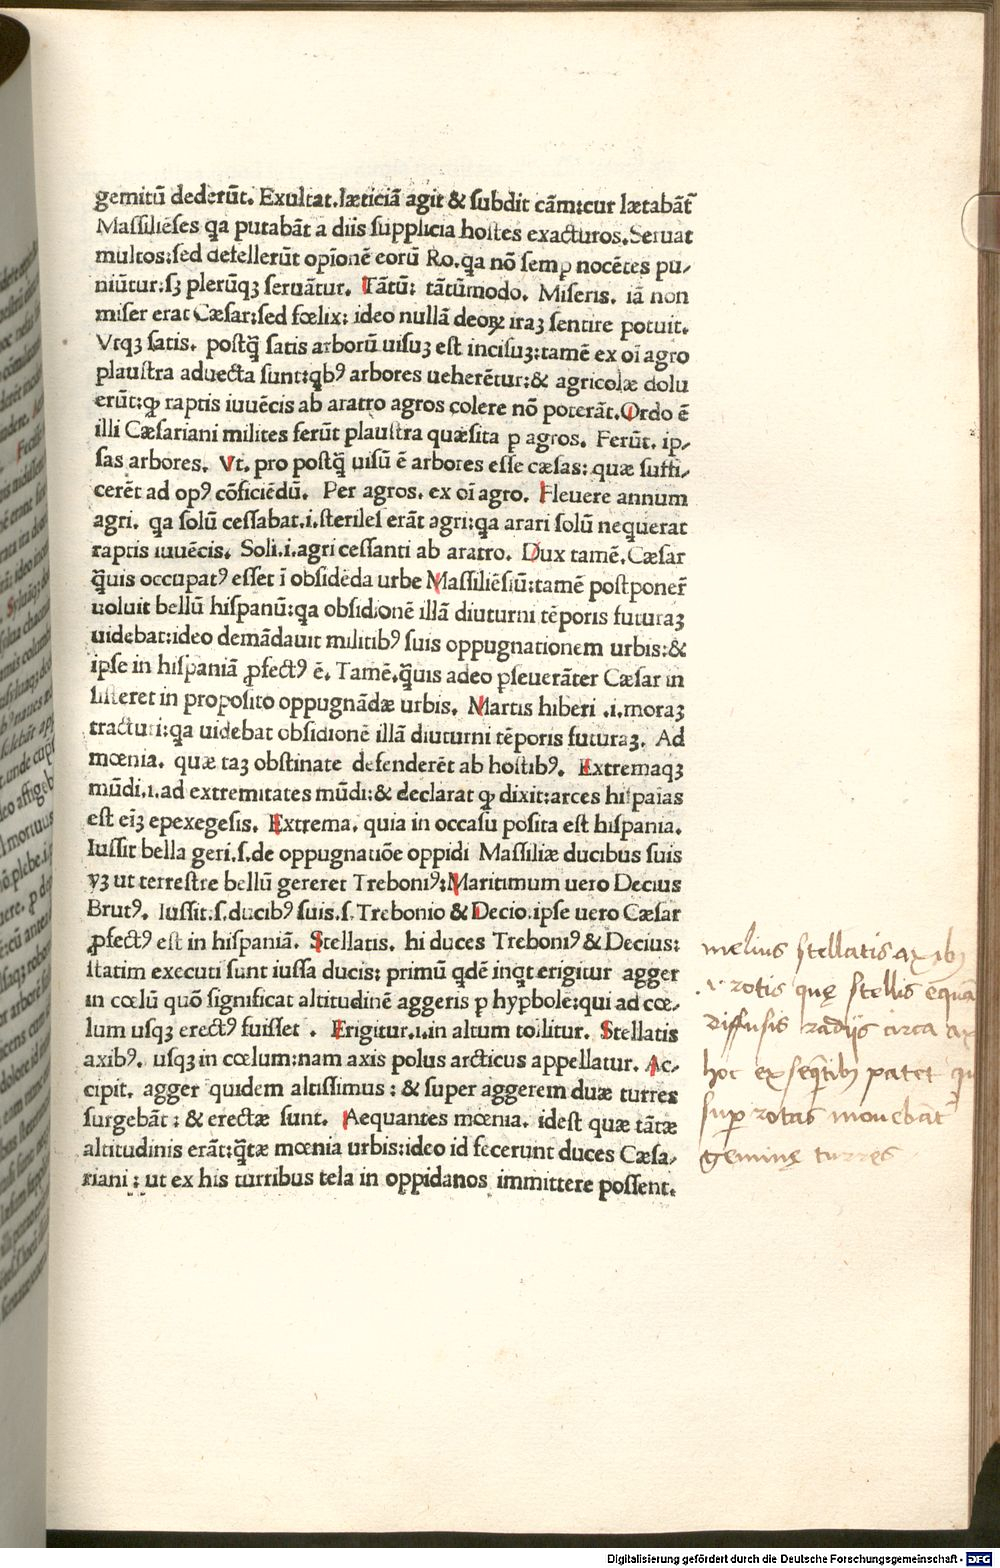 gemitū dederūt. Exultat. læticiā agit & subdit cām:cur lætabāt
Massiliēses qa putabāt a diis supplicia hostes exacturos. Seruat
multos:sed defellerūt opīonē eorū Ro. qa nō semp nocētes pu-
niūtur:sꝫ plerūqꝫ seruātur. Tātū: tātūmodo. Miseris. iā non
miser erat Cæsar:sed fœlix: ideo nullā deoꝝ iraꝫ sentire potuit.
Vtqꝫ satis. postq̄ satis arborū uisuꝫ est incisuꝫ:tamē ex oī agro
plaustra aduecta sunt:qbꝰ arbores ueherētur:& agricolæ dolu
erūt:ꝙ raptis iuuēcis ab aratro agros colere nō poterāt. Ordo ē
illi Cæsariani milites ferūt plaustra quæsita ꝑ agros. Ferūt. ip-
sas arbores. Vt. pro postq̄ uisū ē arbores esse cæsas: quæ suffi-
cerēt ad opꝰ cōficiēdū. Per agros. ex oī agro. Fleuere annum
agri. qa solū cessabat.i.steriles erāt agri:qa arari solū nequerat
raptis iuuēcis. Soli.i.agri cessanti ab aratro. Dux tamē. Cæsar
q̄uis occupatꝰ esset ī obsidēda urbe Massiliēsiū:tamē postponer̄
uoluit bellū hispanū:qa obsidionē illā diuturni tēporis futuraꝫ
uidebat:ideo demādauit militibꝰ suis oppugnationem urbis:&
ipse in hispaniā ꝓfectꝰ ē. Tamē.q̄uis adeo ꝑseuerāter Cæsar in
sisteret in proposito oppugnādæ urbis. Martis hiberi .i.moraꝫ
tracturi:qa uidebat obsidionē illā diuturni tēporis futuraꝫ. Ad
mœnia. quæ taꝫ obstinate defenderēt ab hostibꝰ. Extremaqꝫ
mūdi.i.ad extremitates mūdi:& declarat ꝙ dixit:arces hispaīas
est eīꝫ epexegesis. Extrema. quia in occasu posita est hispania.
Iussit bella geri.s.de oppugnatiōe oppidi Massiliæ ducibus suis
vꝫ ut terrestre bellū gereret Treboniꝰ:Maritimum uero Decius
Brutꝰ. Iussit.s.ducibꝰ suis.s.Trebonio & Decio.ipse uero Cæsar
ꝓfectꝰ est in hispaniā. Stellatis. hi duces Treboniꝰ & Decius:
statim executi sunt iussa ducis: primū qdē inqt erigitur agger
in cœlū quō significat altitudinē aggeris ꝑ hypbole:qui ad cœ-
lum usqꝫ erectꝰ fuisset . Erigitur.i.in altum tollitur. Stellatis
axibꝰ. usqꝫ in cœlum:nam axis polus arcticus appellatur. Ac-
cipit. agger quidem altissimus : & super aggerem duæ turres
surgebāt : & erectæ sunt. Aequantes mœnia. idest quæ tātæ
altitudinis erāt:q̄tæ mœnia urbis:ideo id fecerunt duces Cæsa-
riani : ut ex his turribus tela in oppidanos immittere possent.
melius stellatis axibꝫ
.i. rotis quę stellis ēquā
diffusis radijs circa ax
hoc ex seq̄tibꝫ patet qu
suꝑ rotas mouebāt
geminę turres
Digitalisierung gefördert durch die Deutsche Forschungsgemeinschaft - DFG